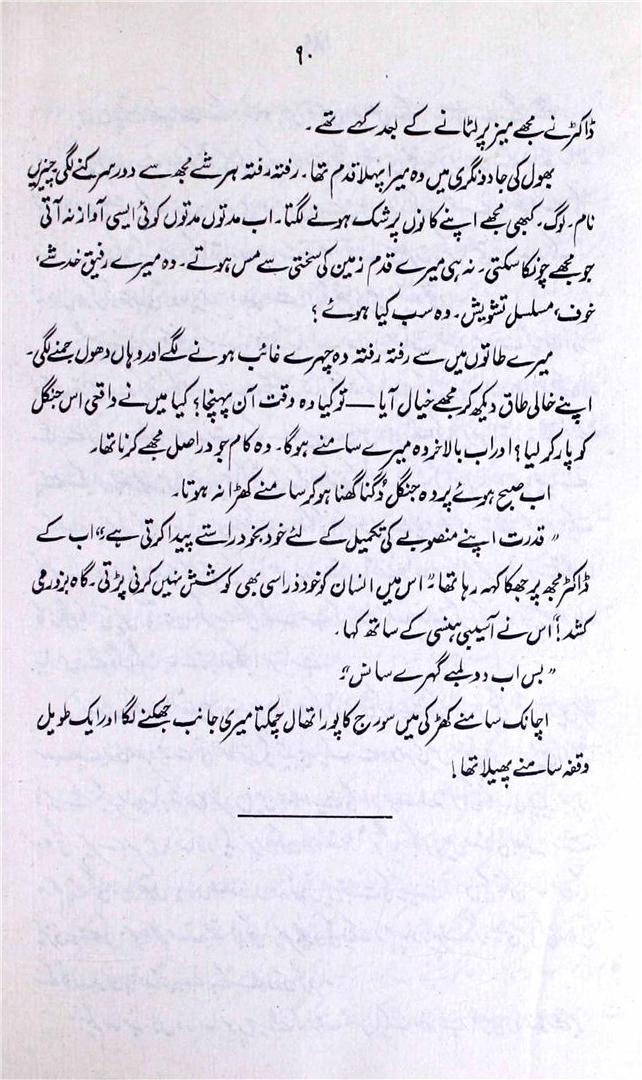 ۹۰
ڈاکٹر نے مجھے میز پر لٹانے کے بعد کہے تھے۔
بھول کی جادونگری میں وہ میرا پہلا قدم تھا۔ رفتہ رفتہ ہر شے مجھ سے دور سرکنے لگی چیزیں
نام۔ لوگ۔ کبھی مجھے اپنے کانوں پر شک ہونے لگتا۔ اب مدتوں مدتوں کوئی ایسی آواز نہ آتی
جو مجھے چونکا سکتی۔ نہ ہی میرے قدم زمین کی سختی سے مس ہوتے۔ وہ میرے رفیق خدشے،
خوف، مسلسل تشویش۔ وہ سب کیا ہوئے؟
میرے طاقوں میں سے رفتہ رفتہ وہ چہرے غائب ہونے لگے اور وہاں دھول جمنے لگی۔
اپنے خالی طاق دیکھ کر مجھے خیال آیا — تو کیا وہ وقت آن پہنچا؟ کیا میں نے واقعی اس جنگل
کو پار کر لیا؟ اور اب بالآخر وہ میرے سامنے ہوگا۔ وہ کام جو دراصل مجھے کرنا تھا۔
اب صبح ہوئے پر وہ جنگل دُگنا گھنا ہو کر سامنے کھڑا نہ ہوتا۔
”قدرت اپنے منصوبے کی تکمیل کے لئے خود بخود راستے پیدا کرتی ہے“ اب کے
ڈاکٹر مجھ پر جھکا کہہ رہا تھا ”اس میں انسان کو خود ذرا سی بھی کوشش نہیں کرنی پڑتی۔ گاہ بزور می
کشد!“ اس نے آسیبی ہنسی کے ساتھ کہا۔
”بس اب دو لمبے گہرے سانس“
اچانک سامنے کھڑکی میں سورج کا پورا تھال چمکتا میری جانب جھکنے لگا اور ایک طویل
وقفہ سامنے پھیلا تھا!